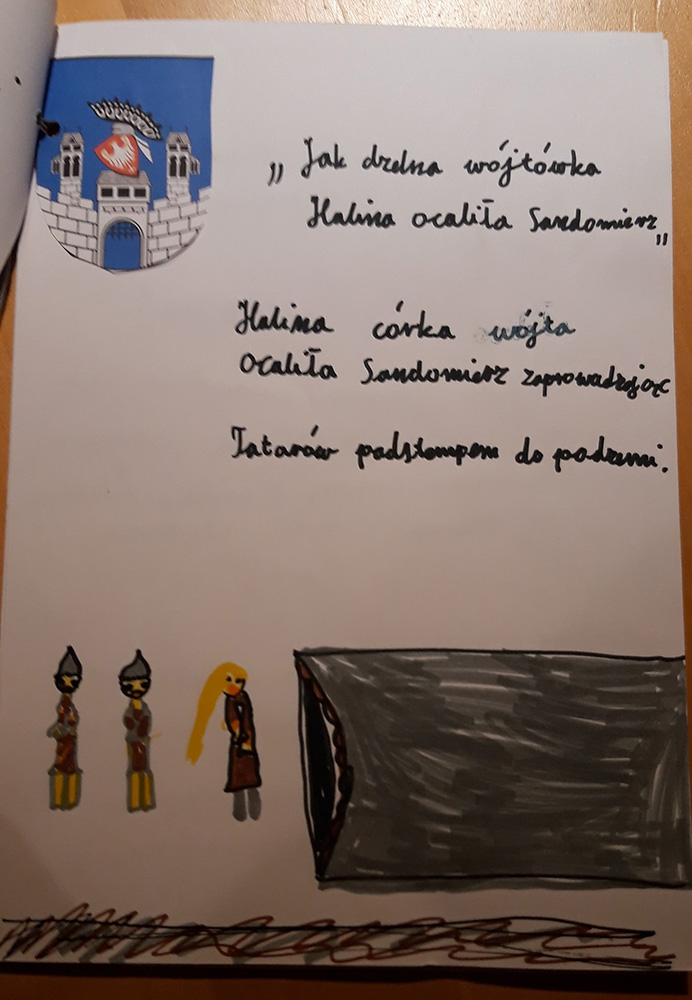 „Jak dzelna wójtówka
Halina ocaliła Sandomierz„
Halina córka wójta
Ocaliła Sandomierz zaprowadzając
Tatarów podstempem do podzemi.